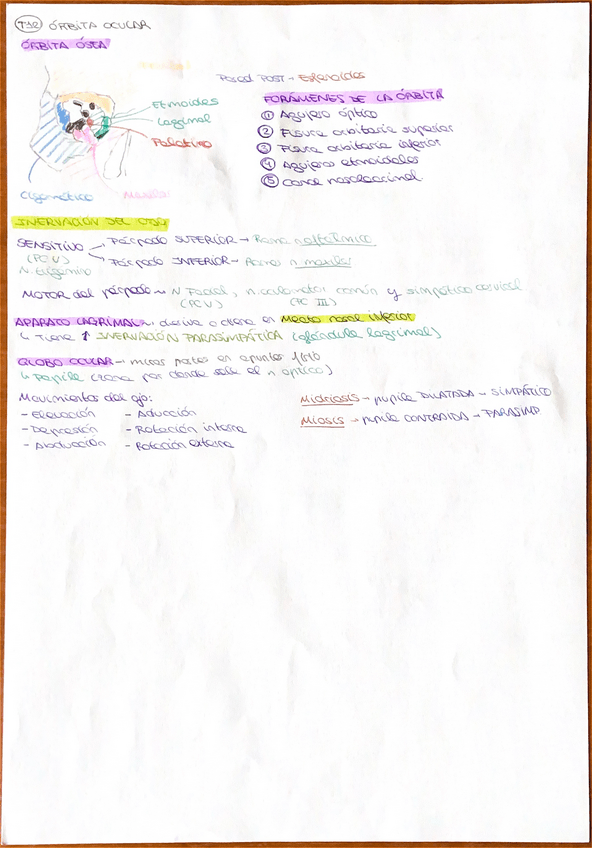 T12 ÓRBITA OCULAR
ÓRBITA ÓSEA
Frontal
Pared POST → Esfenoides
Etmoides
Lagrimal
Palatino
Cigomático
Maxilar
FORÁMENES DE LA ÓRBITA
① Agujero óptico
② Fisura orbitaria superior
③ Fisura orbitaria inferior
④ Agujeros etmoidales
⑤ Canal nasolacrimal
INERVACIÓN DEL OJO
SENSITIVO → Párpado SUPERIOR → Rama n oftálmico
(PC V) → Párpado INFERIOR → Ramo n maxilar
N. trigémino
MOTOR del párpado → N Facial, n. oculomotor común y simpático cervical
(PC V) (PC III)
APARATO LAGRIMAL → drena en Meato nasal inferior
↳ Tiene ↑ INERVACIÓN PARASIMPÁTICA (glándula lagrimal)
GLOBO OCULAR → mirar partes en apuntes
↳ Papila (zona por donde sale el n óptico)
Movimientos del ojo:
- Elevación - Aducción
- Depresión - Rotación interna
- Abducción - Rotación externa
Midriasis → pupila DILATADA → SIMPÁTICO
Miosis → pupila CONTRAIDA → PARASIMP